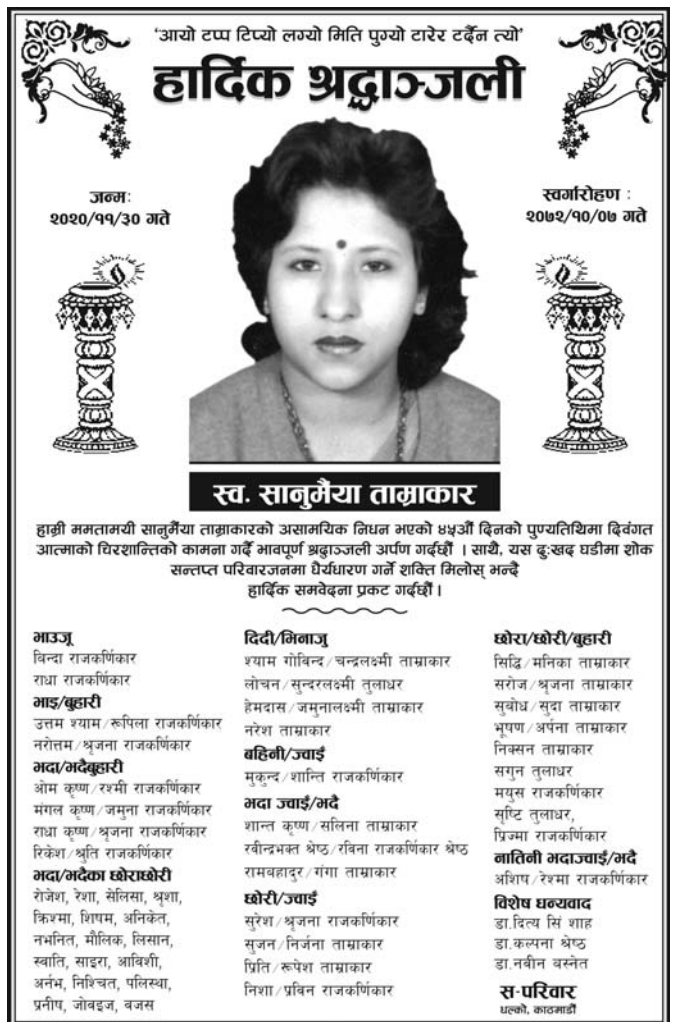 ‘आयो टप्प टिप्यो लग्यो मिति पुग्यो टारेर टर्दैन त्यो’
हार्दिक श्रद्धाञ्जली
जन्मः
२०२०/११/३० गते
स्वर्गारोहण :
२०७२/१०/०७ गते
स्व. सानुमैंया ताम्राकार
हाम्री ममतामयी सानुमैंया ताम्राकारको असामयिक निधन भएको ४५औं दिनको पुण्यतिथिमा दिवंगत
आत्माको चिरशान्तिको कामना गर्दै भावपूर्ण श्रद्धाञ्जली अर्पण गर्दछौं । साथै, यस दुःखद घडीमा शोक
सन्तप्त परिवारजनमा धैर्यधारण गर्ने शक्ति मिलोस् भन्दै
हार्दिक समवेदना प्रकट गर्दछौं ।
भाउजू
विन्दा राजकर्णिकार
राधा राजकर्णिकार
भाइ/बुहारी
उत्तम श्याम/रूपिला राजकर्णिकार
नरोत्तम/श्रृजना राजकर्णिकार
भदा/भदैबुहारी
ओम कृष्ण/रश्मी राजकर्णिकार
मंगल कृष्ण/जमुना राजकर्णिकार
राधा कृष्ण/श्रृजना राजकर्णिकार
रिकेश/श्रुति राजकर्णिकार
भदा/भदैका छोराछोरी
रोजेश, रेशा, सेलिसा, श्रृशा,
क्रिश्मा, शिषम, अनिकेत,
नभनित, मौलिक, लिसान,
स्वाति, साइरा, आविशी,
अर्नभ, निश्चित, पलिस्था,
प्रनीष, जोवइज, वजस
दिदी/भिनाजु
श्याम गोबिन्द/चन्द्रलक्ष्मी ताम्राकार
लोचन/सुन्दरलक्ष्मी तुलाधर
हेमदास/जमुनालक्ष्मी ताम्राकार
नरेश ताम्राकार
बहिनी/ज्वाइँ
मुकुन्द/शान्ति राजकर्णिकार
भदा ज्वाइँ/भदै
शान्त कृष्ण/सलिना ताम्राकार
रवीन्द्रभक्त श्रेष्ठ/रविना राजकर्णिकार श्रेष्ठ
रामबहादुर/गंगा ताम्राकार
छोरी/ज्वाइँ
सुरेश/श्रृजना राजकर्णिकार
सुजन/निर्जना ताम्राकार
प्रिति/रूपेश ताम्राकार
निशा/प्रविन राजकर्णिकार
छोरा/छोरी/बुहारी
सिद्धि/मनिका ताम्राकार
सरोज/श्रृजना ताम्राकार
सुबोध/सुदा ताम्राकार
भूषण/अर्पना ताम्राकार
निक्सन ताम्राकार
सगुन तुलाधर
मयुस राजकर्णिकार
सृष्टि तुलाधर,
प्रिज्मा राजकर्णिकार
नातिनी भदाज्वाइँ/भदै
अशिष/रेश्मा राजकर्णिकार
विशेष धन्यवाद
डा.दित्य सिं शाह
डा.कल्पना श्रेष्ठ
डा.नबीन बस्नेत
स-परिवार
धल्को, काठमाडौं